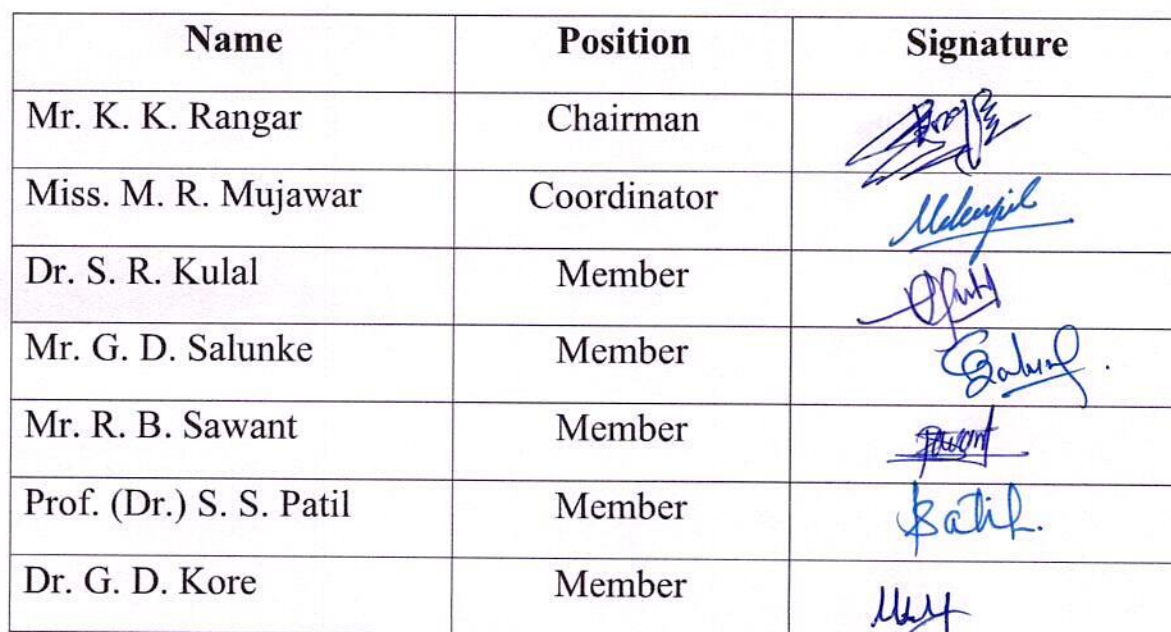 Name Position Signature
Mr. K. K. Rangar Chairman
Miss. M. R. Mujawar Coordinator
Dr. S. R. Kulal Member
Mr. G. D. Salunke Member
Mr. R. B. Sawant Member
Prof. (Dr.) S. S. Patil Member
Dr. G. D. Kore Member